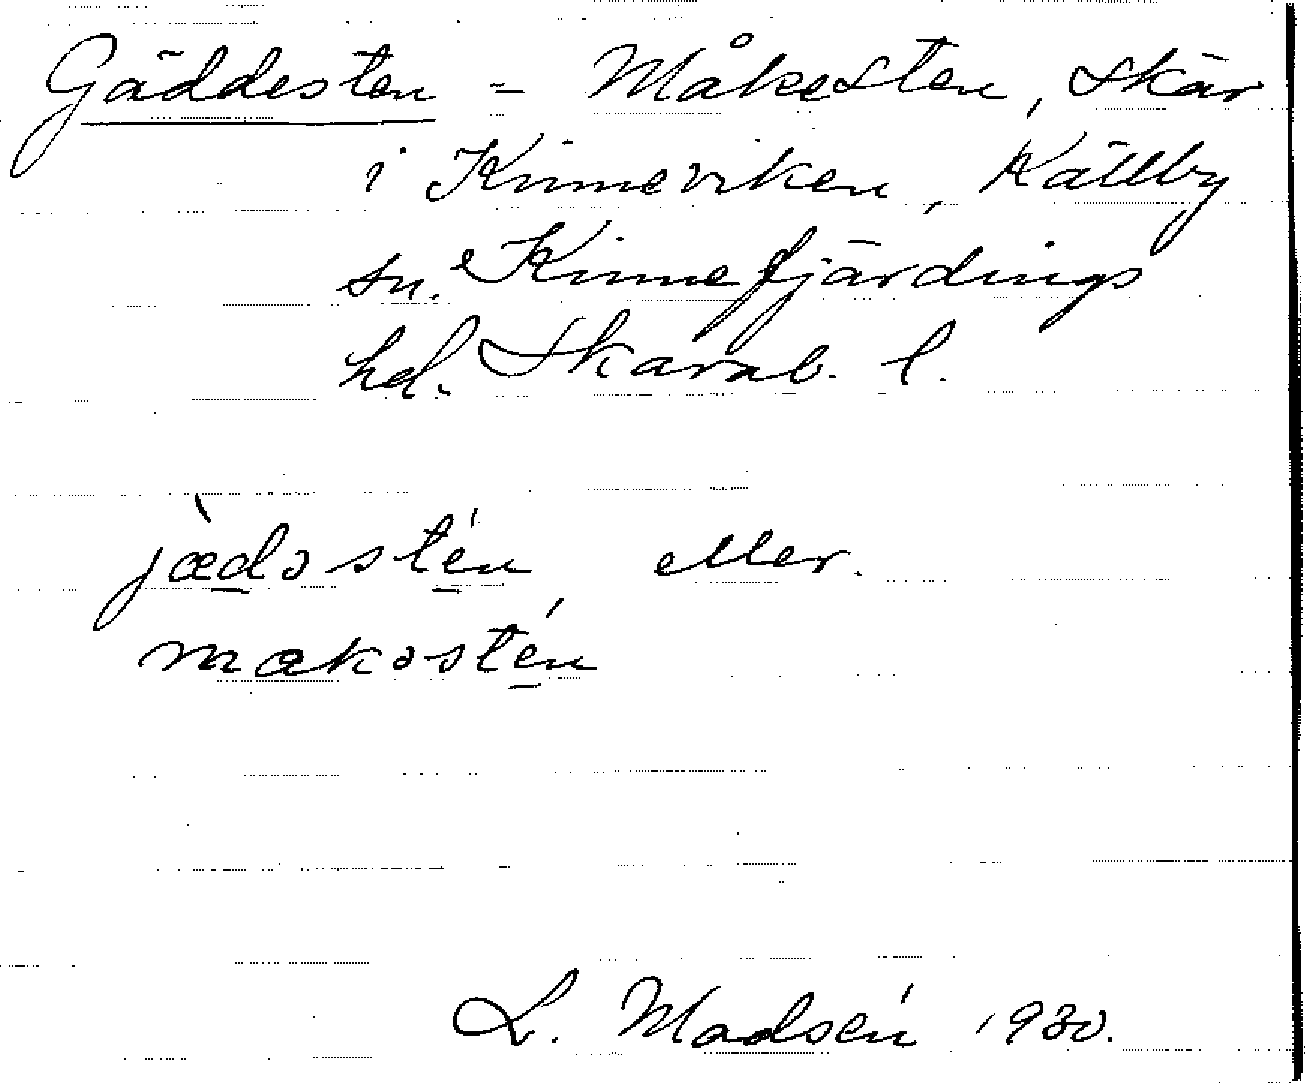 Gäddesten = Måkesten, skär
i Kinneviken, Källby
sn. Kinnefjärdings
hd. Skarab. l.
jædəstén eller.
makəstén
L. Madsén 1930.